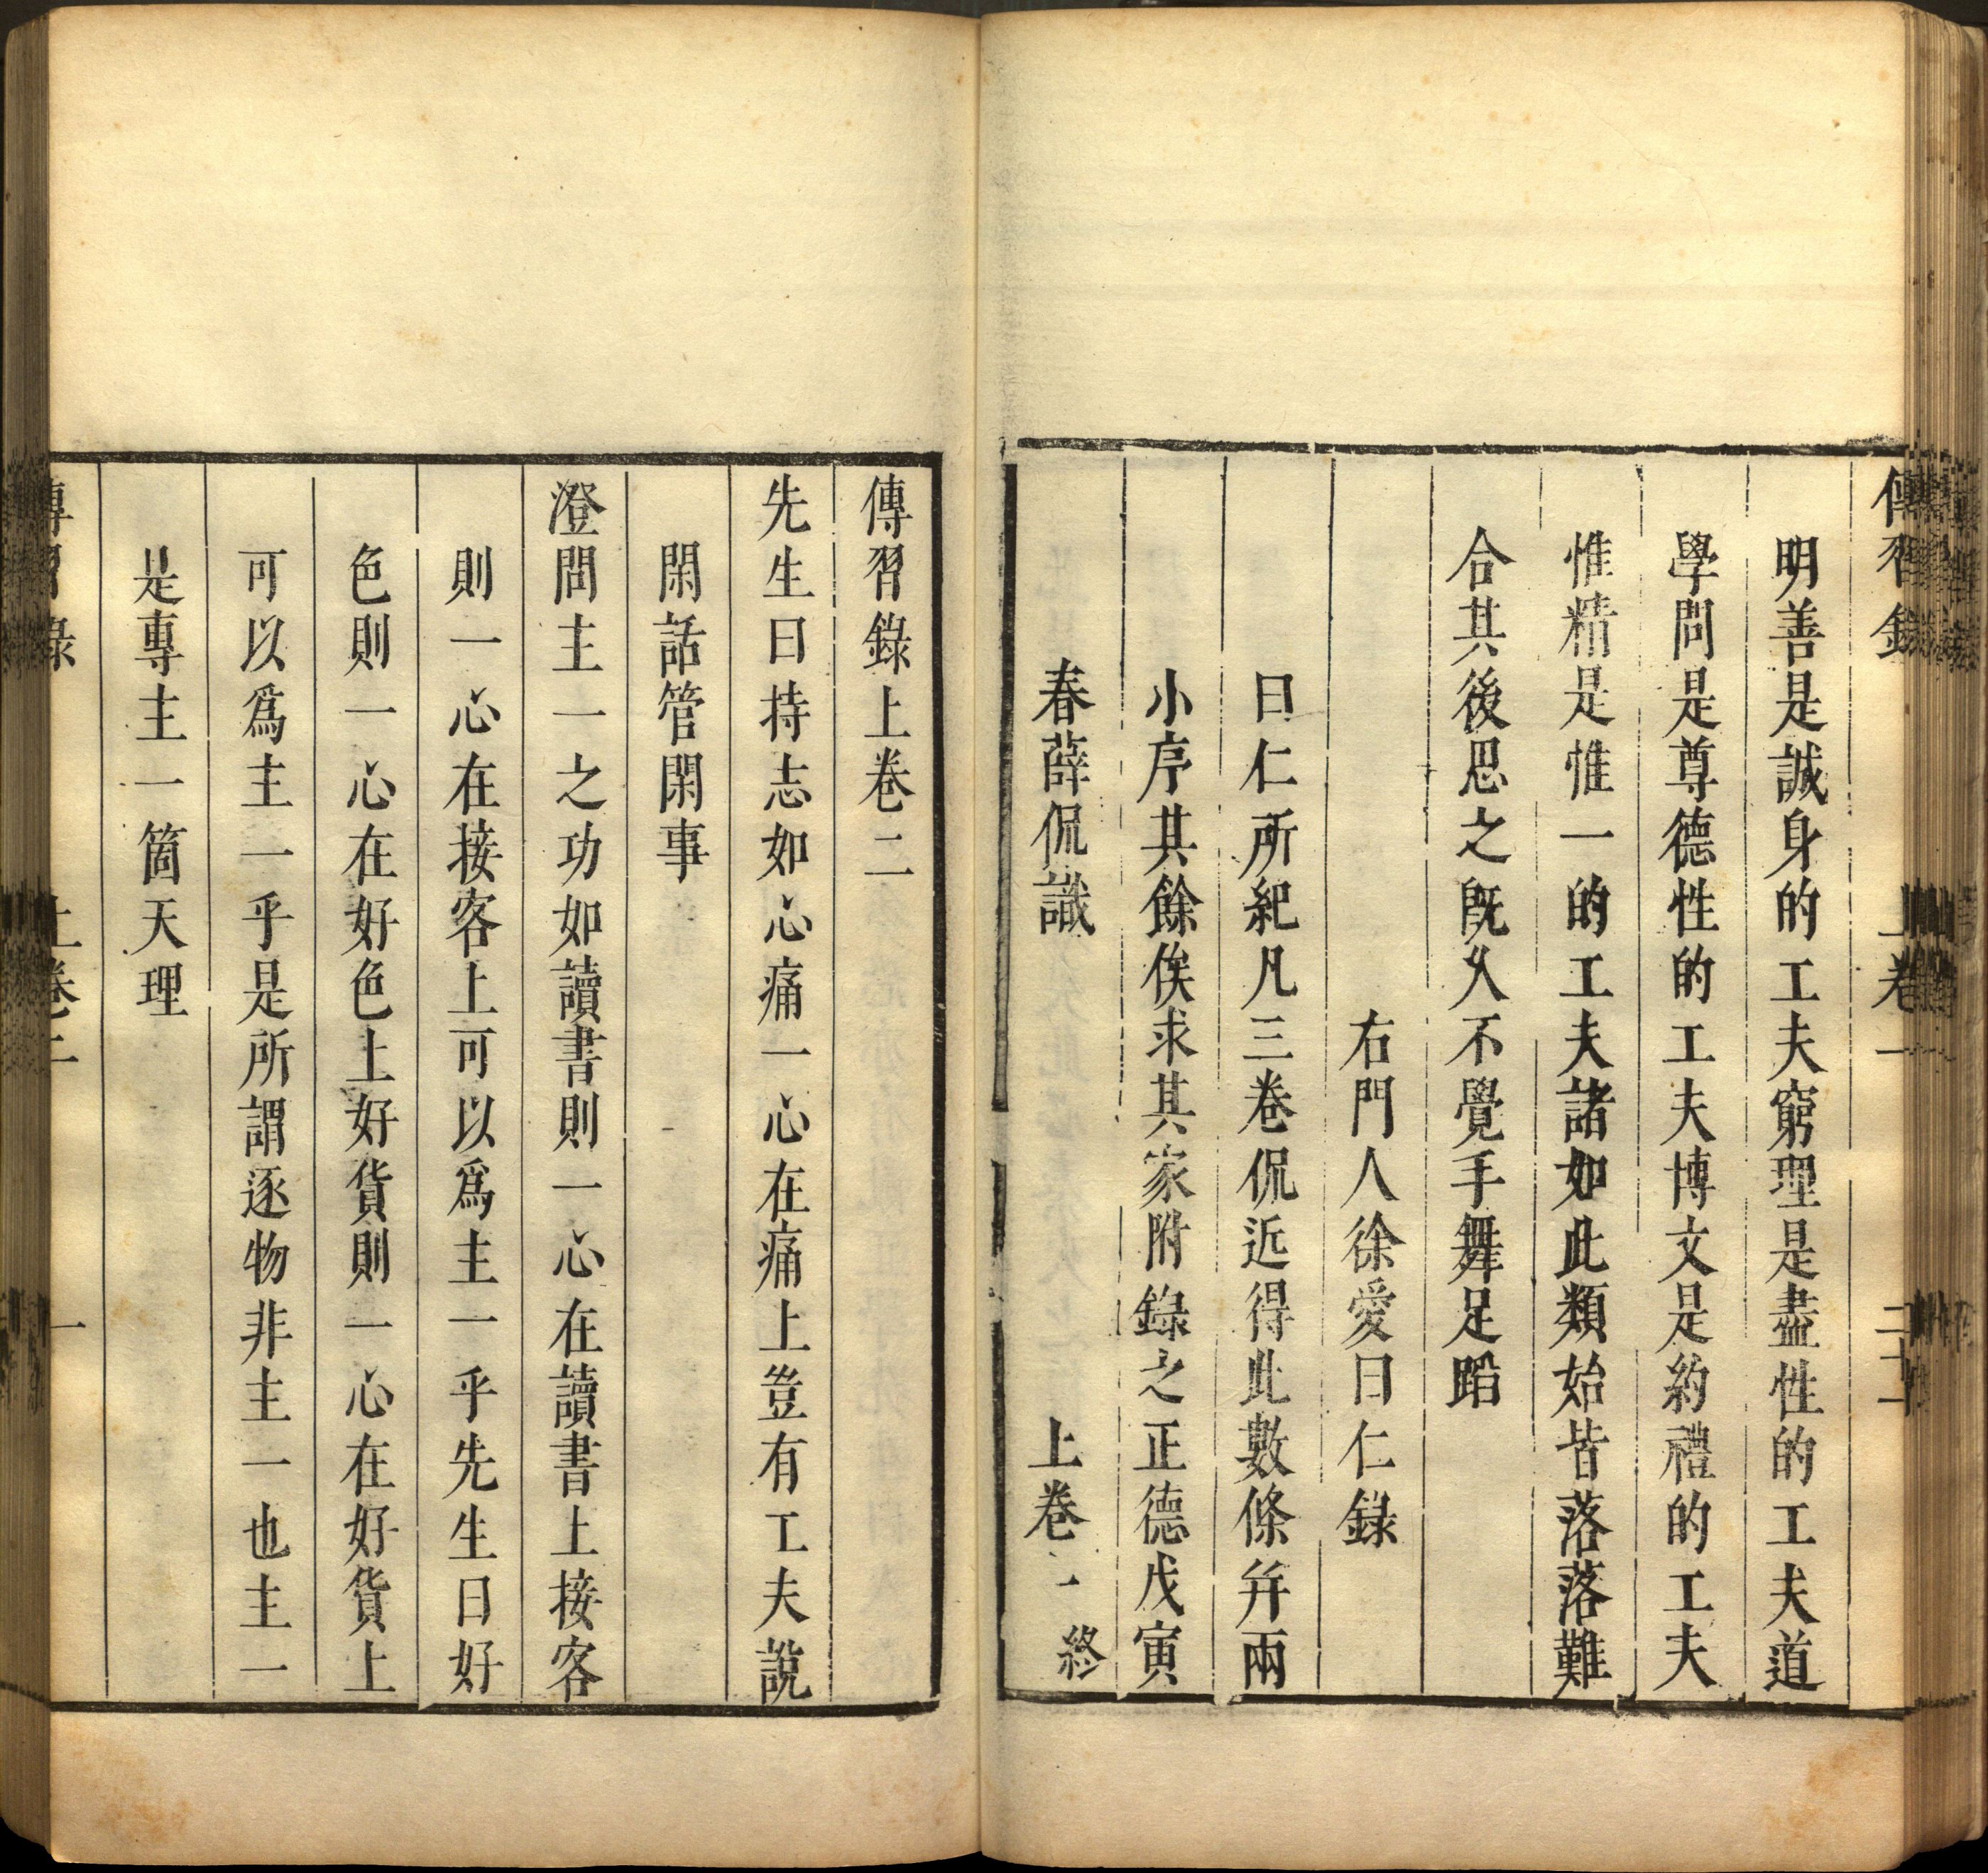 傳習錄 上卷一 二十一
明善是誠身的工夫窮理是盡性的工夫道
學問是尊德性的工夫博文是約禮的工夫
惟精是惟一的工夫諸如此類始皆落落難
合其後思之旣久不覺手舞足蹈
右門人徐愛曰仁錄
曰仁所紀凡三卷侃近得此數條幷兩
小序其餘俟求其家附錄之正德戊寅
春薛侃識 上卷一終
傳習錄上卷二
先生曰持志如心痛一心在痛上豈有工夫說
閑話管閑事
澄問主一之功如讀書則一心在讀書上接客
則一心在接客上可以爲主一乎先生曰好
色則一心在好色上好貨則一心在好貨上
可以爲主一乎是所謂逐物非主一也主一
是專主一箇天理
傳習錄 上卷二 一